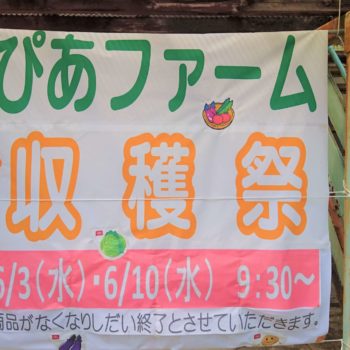 ぴあファーム
収穫祭
6/3(水)・6/10(水) 9:30〜
商品がなくなりしだい終了とさせていただきます。